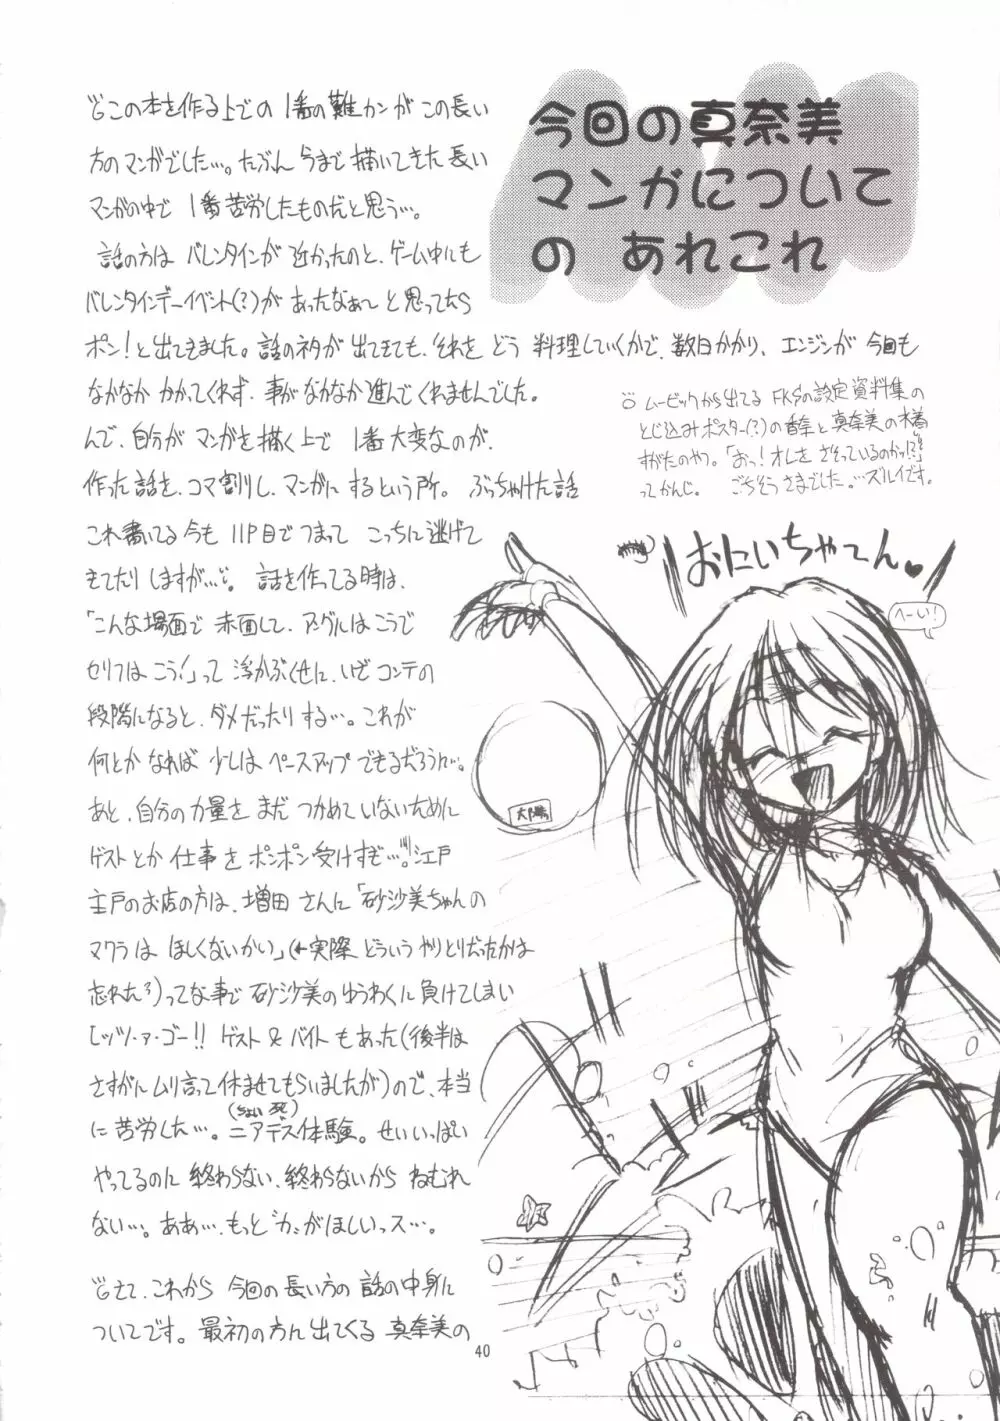 今回の真奈美
マンガについて
の あれこれ
この本を作る上での1番の難カンがこの長い
方のマンガでした…。たぶん今まで描いてきた長い
マンガの中で1番苦労したものだと思う…。
話の方はバレンタインが近かったのと、ゲーム中にも
バレンタインデーイベント(?)があったなぁ〜と思ってたら
ポン!と出てきました。話のネタが出てきても、それをどう料理していくかで、数日かかり、エンジンが今回も
なかなかかかってくれず、事がなかなか進んでくれませんでした。
んで、自分がマンガを描く上で1番大変なのが、
作った話を、コマ割りし、マンガにするという所。ぶっちゃけた話
これ書いてる今も11P目でつまってこっちに逃げて
きてたりしますが…。話を作ってる時は、
「こんな場面で赤面して、アングルはこうで
セリフはこう!」って浮かぶくせに、いざコンテの
段階になると、ダメだったりする…。これが
何とかなれば少しはペースアップできるだろうに…。
あと、自分の力量をまだつかめていないために
ゲストとか仕事をポンポン受けすぎ…。江戸
主戸のお店の方は、増田さんに「砂沙美ちゃんの
マクラはほしくないかい」(←実際どういうやりとりだったかは
忘れたろ)ってな事で砂沙美のゆうわくに負けてしまい
レッツ・ァ・ゴー!!ゲスト&バイトもあった(後半は
さすがにムリ言って休ませてもらいましたが)ので、本当
に苦労した…。ニアデス体験。せいいっぱい
(ちょい死)
やってるのに終わらない、終わらないからねむれ
ない…。ああ…、もっと力がほしいっス…。
さて、これから今回の長い方の話の中身に
ついてです。最初の方に出てくる真奈美の
ムービックから出てるFKSの設定資料集の
とじ込みポスター(?)の香奈と真奈美の水着
すがたのやつ。「おっ!オレをさそっているのかッ!?」
ってかんじ。ごちそうさまでした。…ズルイです。
おにいちゃてん♥
へーい!
太陽
40